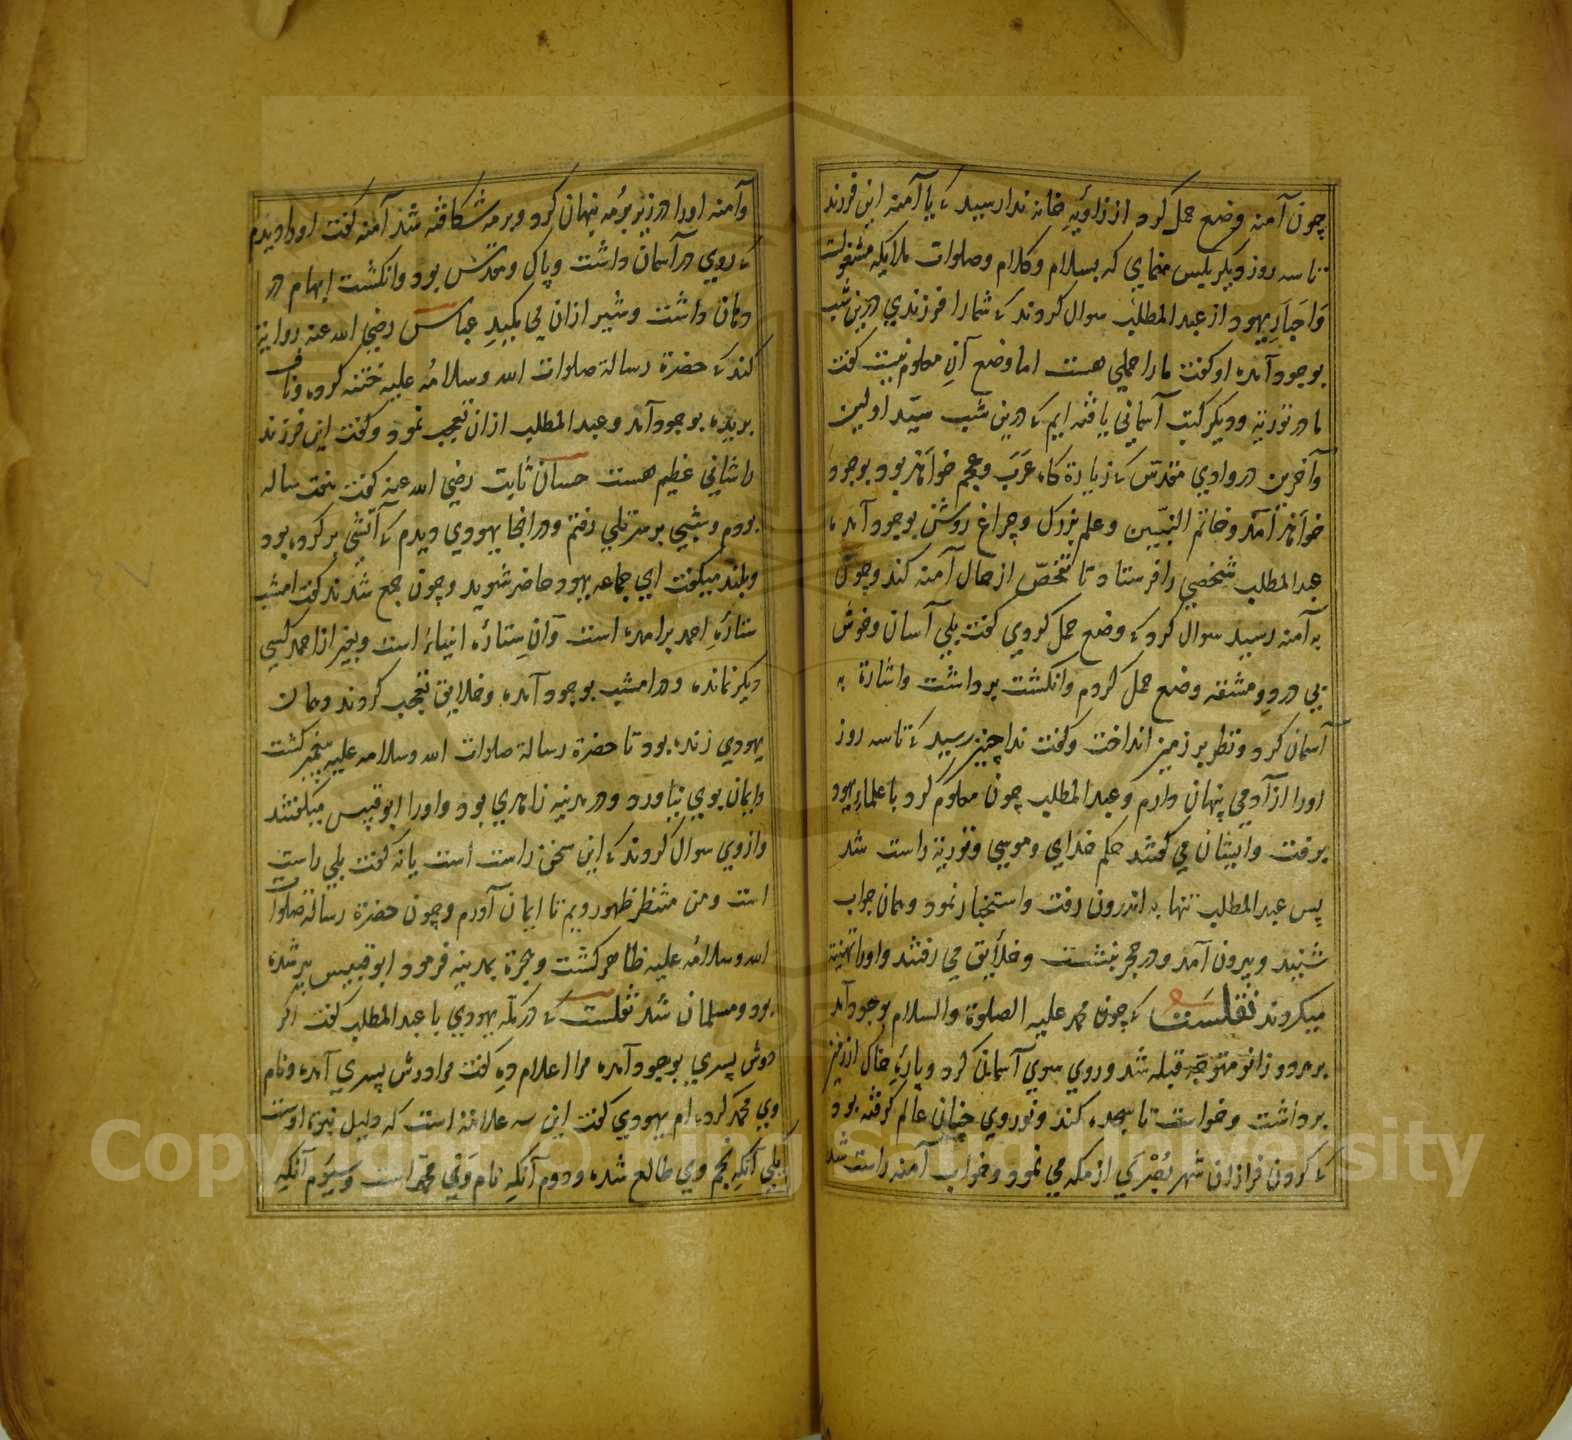 چون آمنه وضع حمل کرد از زاویهٔ خانه ندا رسید که یا آمنه این فرزند
تا سه روز دیگر بکس منمای که بسلام وکلام وصلوات ملایکه مشغولست
واحبار یهود از عبد المطلب سوال کردند که شما را فرزندي درین شب
بوجود آمده او کفت ما را حملي هست اما وضع آن معلوم نیست کفت
ما در توریة ودیکر کتب آسماني یافته ایم که درین شب سید اولین
وآخرین در وادي مقدس که زیارة کاه عرب وعجم خواهد بود بوجود
خواهد آمد وخاتم النبیین وعلم بزرك وچراغ روشن بوجود آمده
عبد المطلب شخصي را فرستاد تا تفحص از حال آمنه کند وچون
به آمنه رسید سوال کرد که وضع حمل کردي کفت بلي آسان وخوش
بي درد ومشقه وضع حمل کردم وانکشت برداشت واشارة به
آسمان کرد ونظر بر زمین انداخت وکفت ندا چنین رسید که تا سه روز
او را از آدمي پنهان دارم وعبد المطلب چون معلوم کرد با علماء یهود
برفت وایشان مي کفتند حکم خداي وموسي وتوریة راست شد
پس عبد المطلب تنها به اندرون رفت واستخبار نمود وهمان جواب
شنید وبیرون آمد ودر حجر بنشست وخلایق مي رفتند واو را تهنیة
میکردند نقلست که چون محمد علیه الصلوة والسلام بوجود آمد
بر هر دو زانو متوجه قبله شد وروي سوي آسمان کرد وپارهٔ خاك از زمین
برداشت وخواست تا سجده کند ونور وي چنان عالم کرفته بود
که کردن فرازان شهر بصري از مکه مي نمود وخواب آمنه راست شد
وآمنه او را در زیر برمه پنهان کرد وبرمه شکافته شد آمنه کفت او را دیدم
که روي در آسمان داشت وپاك ومقدس بود وانکشت ابهام در
دهان داشت وشیر از آن مي مکید عباس رضي الله عنه روایة
کند که حضرة رسالة صلوات الله وسلامه علیه ختنه کرده وناف
بریده بوجود آمد وعبد المطلب از آن تعجب نمود وکفت این فرزند
را شاني عظیم هست حسان ثابت رضي الله عنه کفت هفت ساله
بودم وشبي بر سر تلي رفتم ودر انجا یهودي دیدم که آتشي بر کرده بود
وبلند میکفت اي جماعه یهود حاضر شوید وچون جمع شدند کفت امشب
ستارهٔ احمد برامده است وآن ستارهٔ انبیاء است وبغیر از احمد کسي
دیکر نمانده ودر امشب بوجود آمده وخلایق تعجب کردند وهمان
یهودي زنده بود تا حضرة رسالة صلوات الله وسلامه علیه پیغمبر کشت
وایمان بوي نیاورد ودر مدینه زاهدي بود واو را ابو قبیس میکفتند
واز وي سوال کردند که این سخن راست است یا نه کفت بلي راست
است ومن منتظر ظهور ویم تا ایمان آورم وچون حضرة رسالة صلوات
الله وسلامه علیه ظاهر کشت وهجرة بمدینه فرمود ابو قبیس پیر شده
بود ومسلمان شد نقلست که در مکه یهودي با عبد المطلب کفت اکر
دوش پسري بوجود آمده مرا اعلام ده کفت مرا دوش پسري آمده ونام
وي محمد کرده ام یهودي کفت این سه علامة است که دلیل نبوة اوست
یکي آنکه نجم وي طالع شده ودوم آنکه نام وي محمد است وسیوم آنکه
Copyright © King Saud University